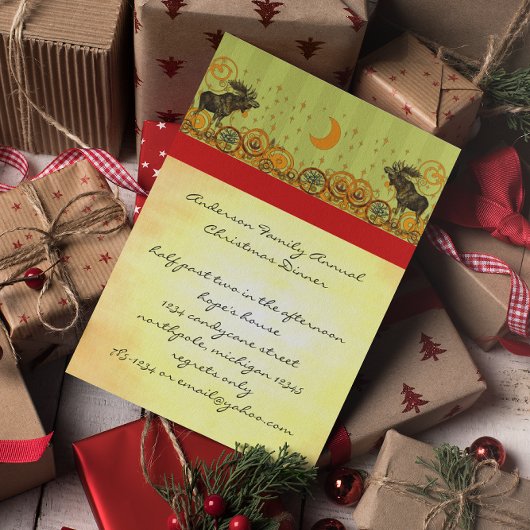 Anderson Family Annual
Christmas Dinner
half past two in the afternoon
hope's house
1234 candycane street
northpole, michigan 12345
regrets only
785-1234 or email@yahoo.com